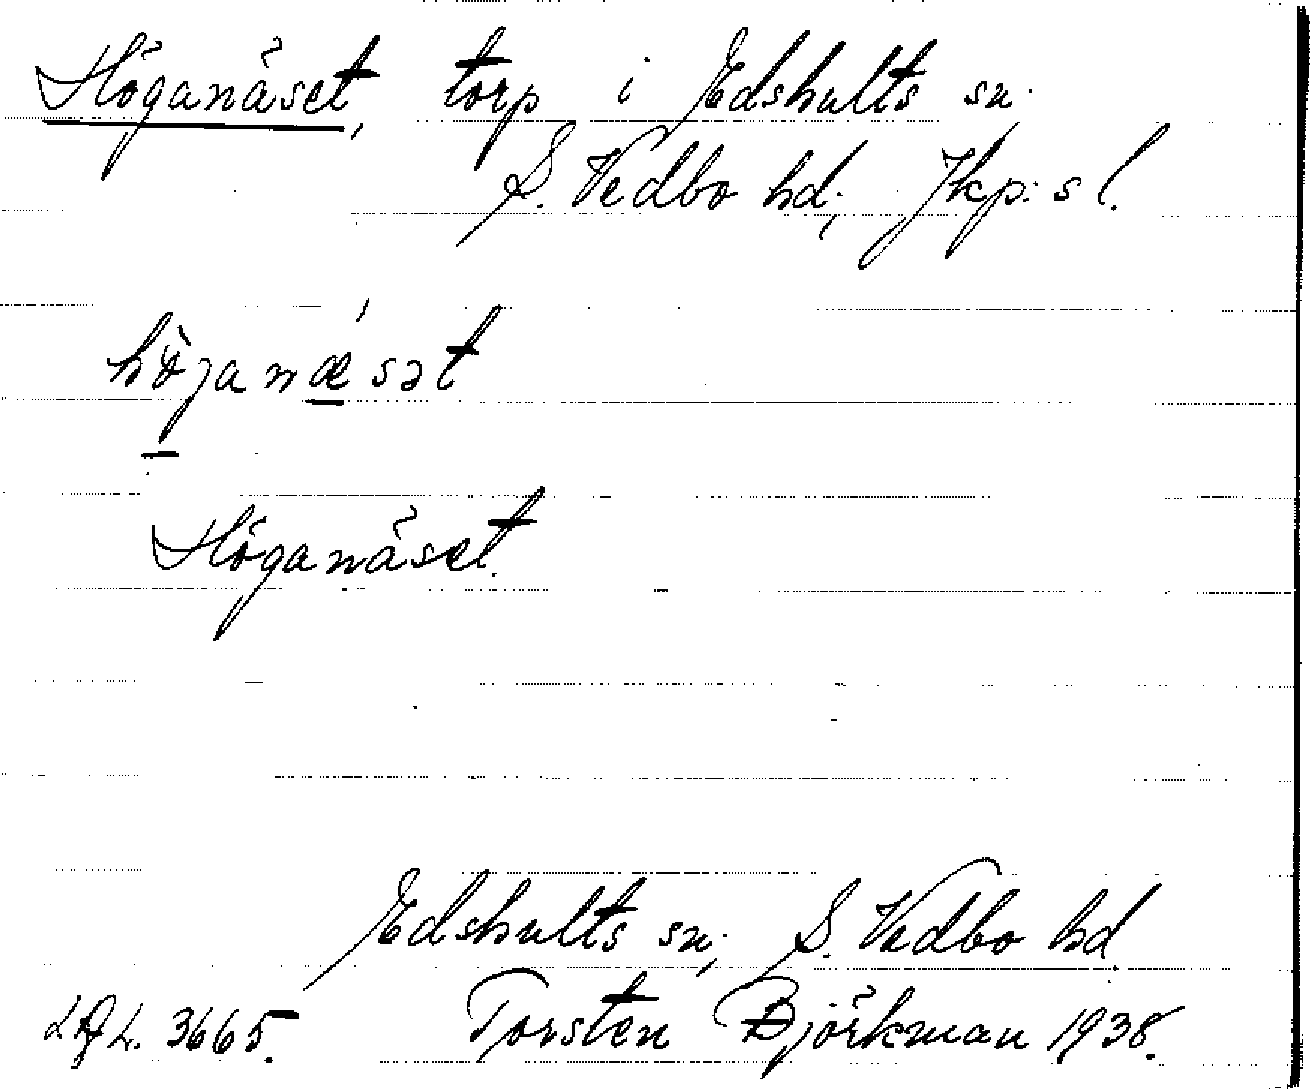 Höganäset, torp i Edshults sn.
S. Vedbo hd; Jkp:s l.
hö̀janǽsət
Höganäset.
Edshults sn; S. Vedbo hd.
3665. Torsten Björkman 1938.